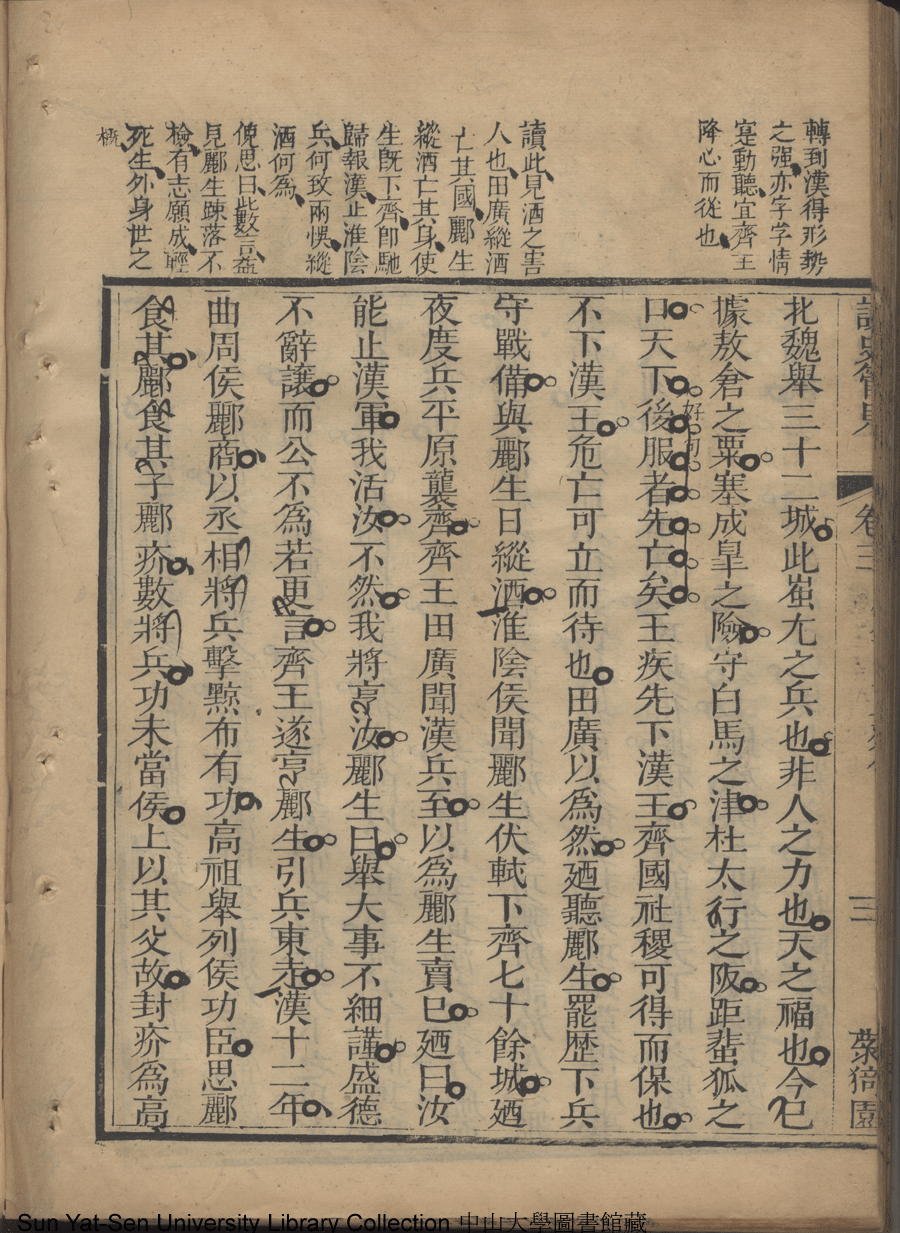 轉到漢得形勢
之強亦字字情
寔動聽宜齊王
降心而從也
讀此見酒之害
人也田廣縱酒
亡其國酈生
縱酒亡其身使
生旣下齊卽馳
歸報漢止淮陰
兵何致兩悞縱
酒何為
俛思曰此數言益
見酈生踈落不
檢有志願成輕
死生外身世之
槪
北魏舉三十二城此蚩尤之兵也非人之力也天之福也今已
據敖倉之粟塞成皐之險守白馬之津杜太行之阪距蜚狐之
口天下後服者先亡矣王疾先下漢王齊國社稷可得而保也
好口角
不下漢王危亡可立而待也田廣以為然廼聽酈生罷歷下兵
守戰備與酈生日縱酒淮陰侯聞酈生伏軾下齊七十餘城廼
夜度兵平原襲齊齊王田廣聞漢兵至以為酈生賣已廼曰汝
能止漢軍我活汝不然我將亨汝酈生曰舉大事不細謹盛德
不辭讓而公不為若更言齊王遂亨酈生引兵東走漢十二年
曲周侯酈商以丞相將兵擊黥布有功高祖舉列侯功臣思酈
食其酈食其子酈疥數將兵功未當侯上以其父故封疥為高
讀史管見
卷三
三
園
Sun Yat-Sen University Library Collection 中山大學圖書館藏